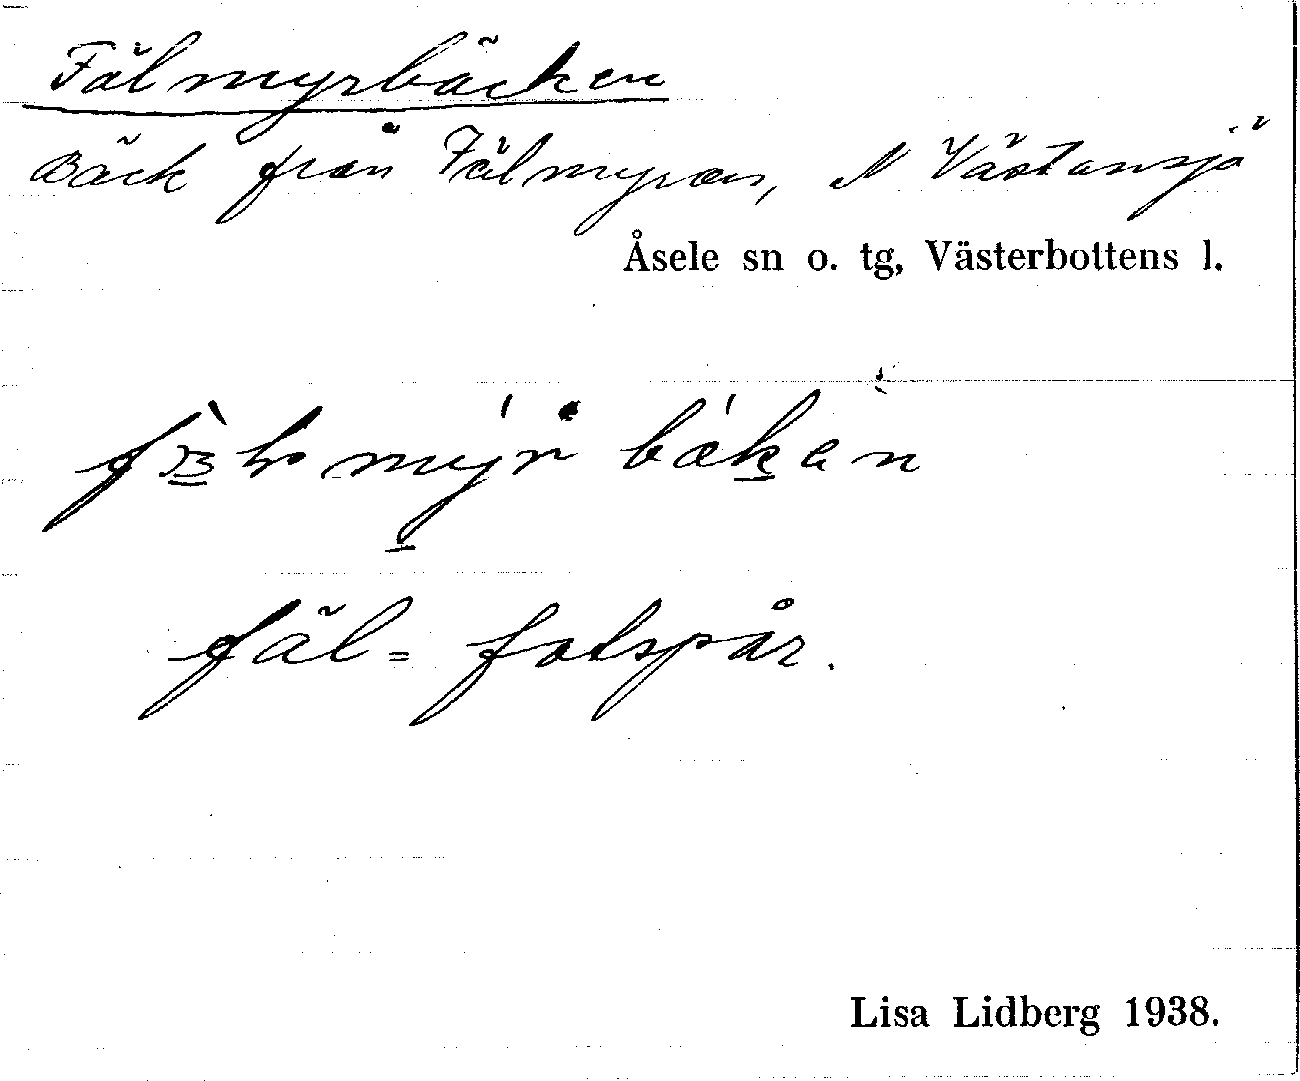 Fälmyrbäcken
Bäck från Fälmyran, N Västansjö
Åsele sn o. tg, Västerbottens l.
fäl = fotspår.
Lisa Lidberg 1938.